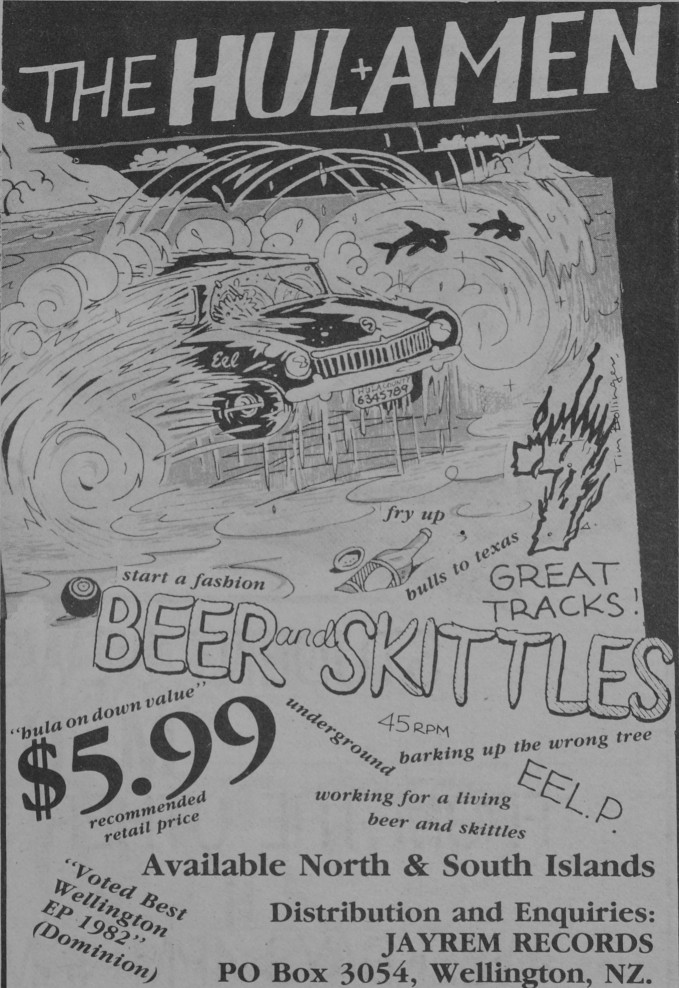 THE HULAMEN
Eel
6345789
Tim Bollinger
fry up
bulls to texas
GREAT
TRACKS!
start a fashion
BEER and SKITTLES
"hula on down value"
$5.99
recommended
retail price
underground
45 RPM
barking up the wrong tree
EEL.P.
working for a living
beer and skittles
Available North & South Islands
"Voted Best
Wellington
EP 1982"
(Dominion)
Distribution and Enquiries:
JAYREM RECORDS
PO Box 3054, Wellington, NZ.